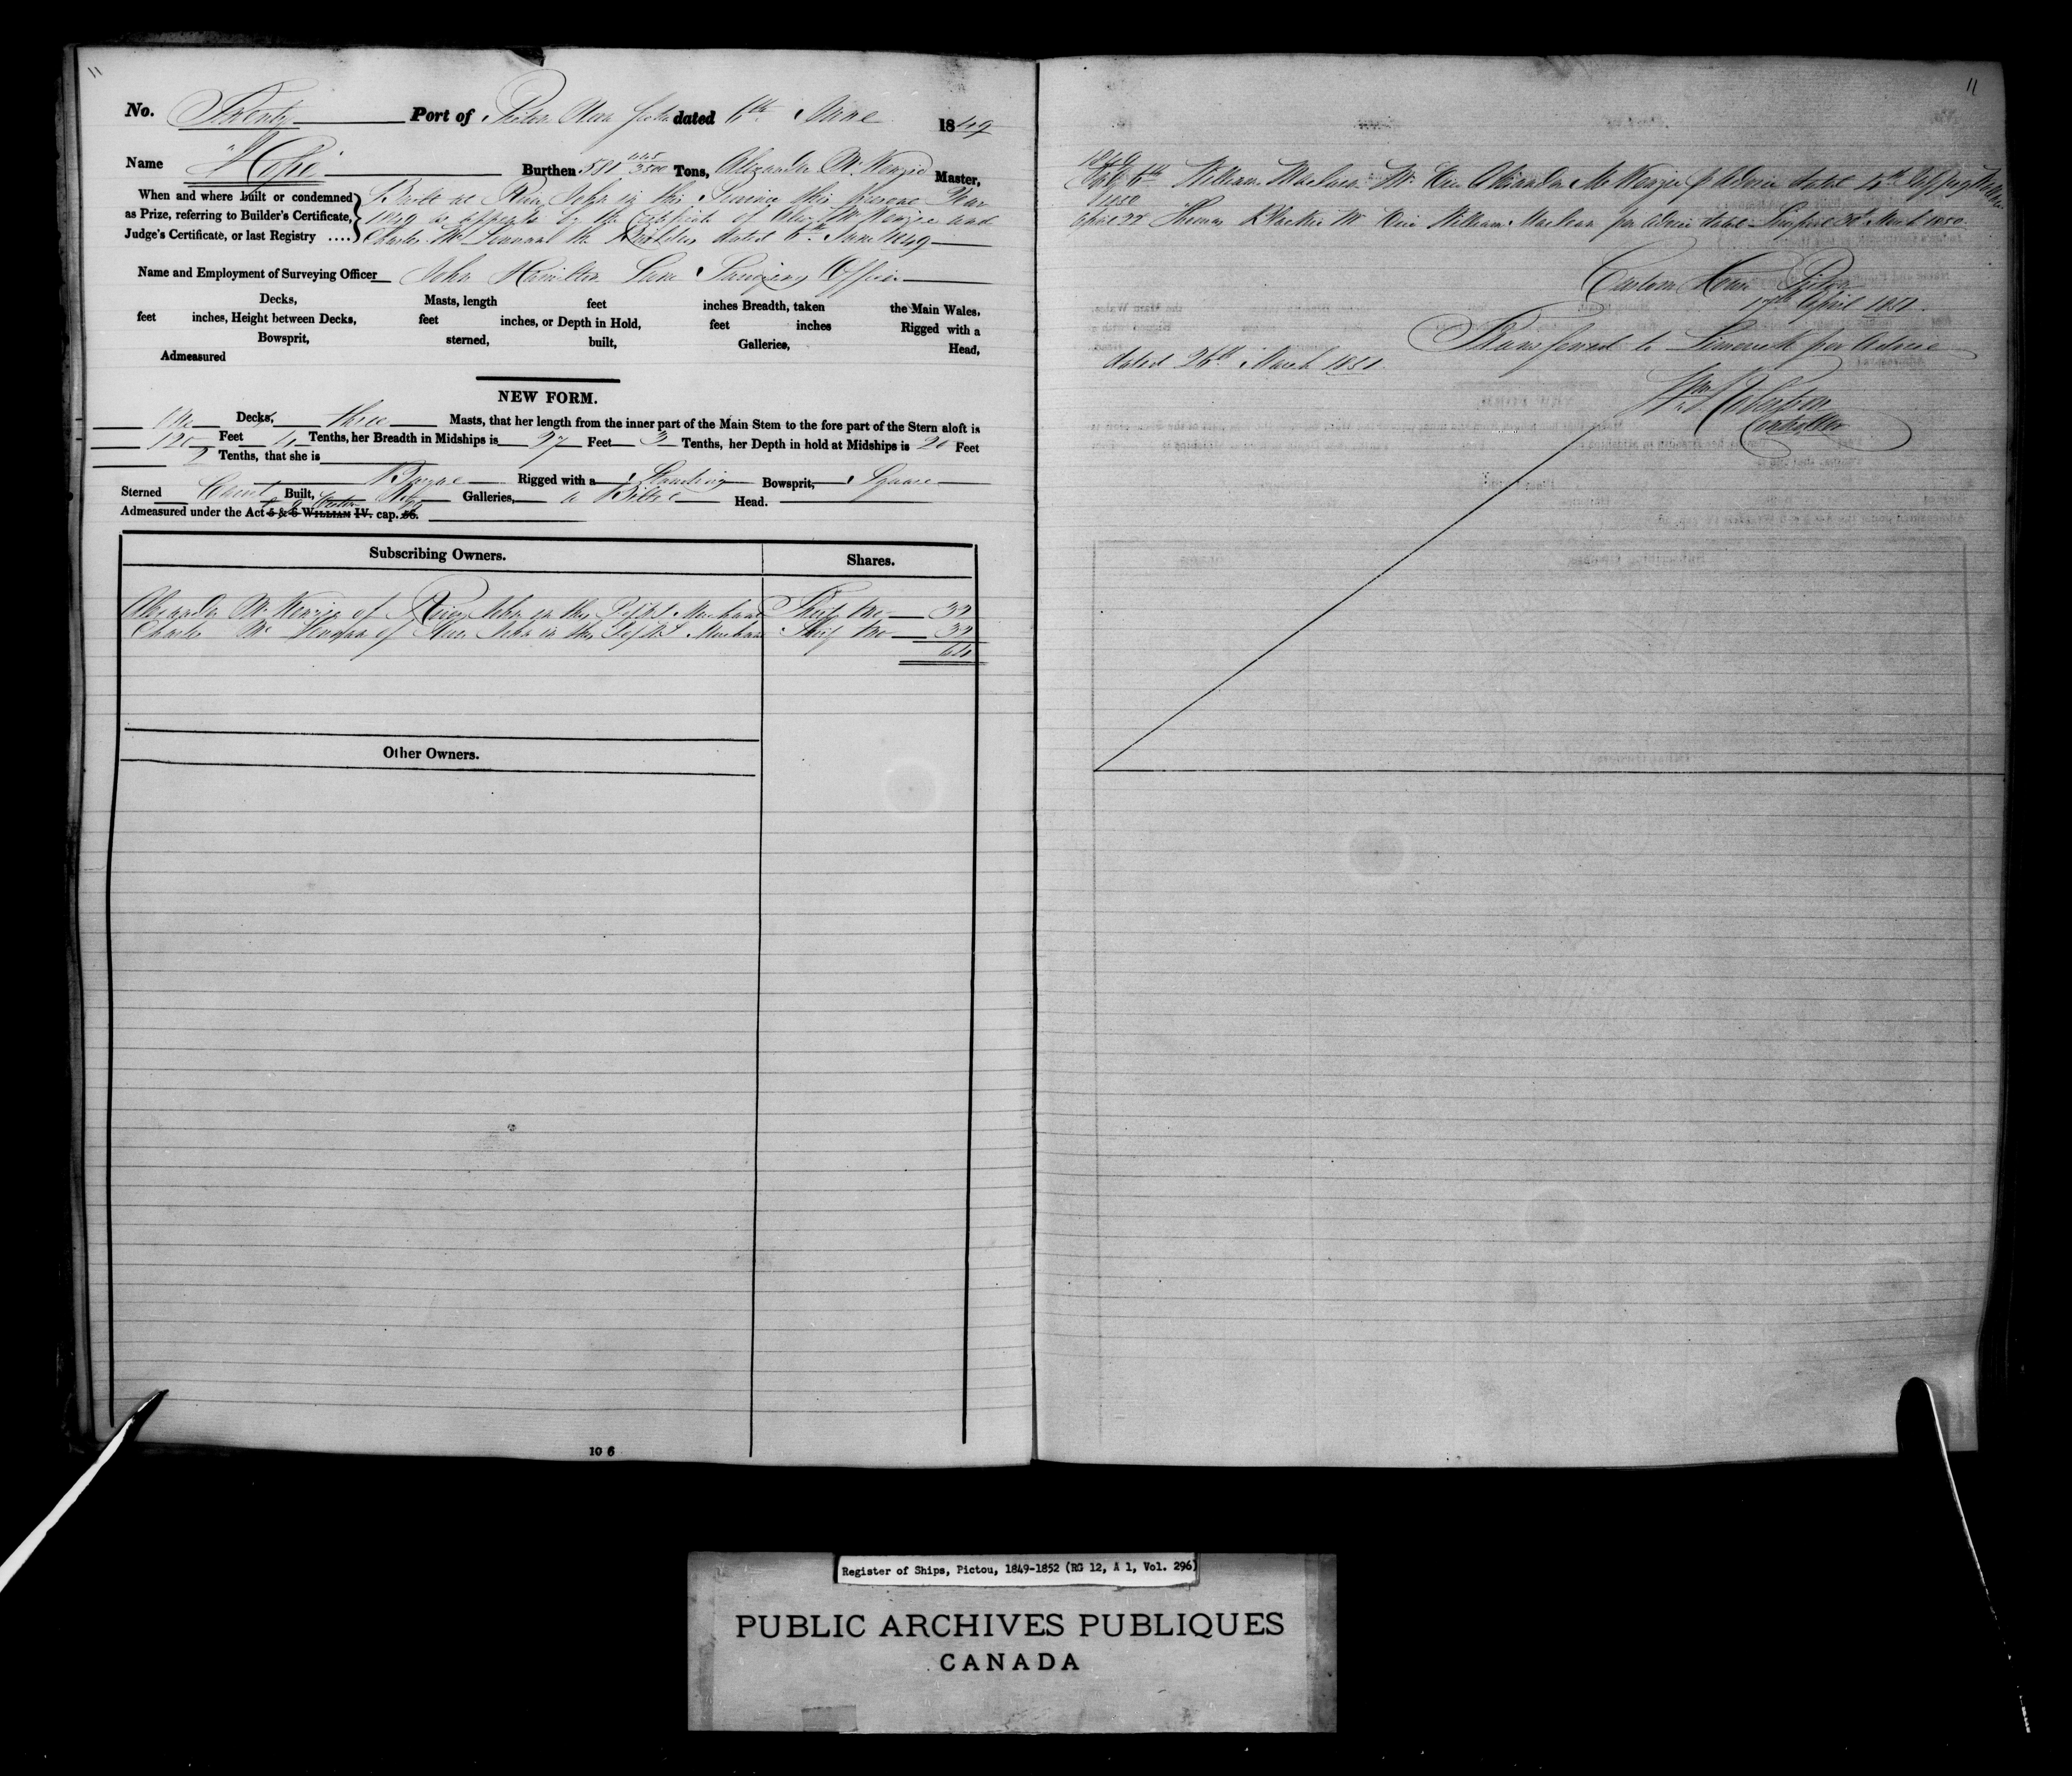 11
No. Twenty Port of Pictou Nova Scotia dated 6th June 1849
Name "Hope" Burthen 581 445/3500 Tons, Alexander McKenzie Master,
When and where built or condemned as Prize, referring to Builder's Certificate, Judge's Certificate, or last Registry ....
Built at River John in this Province this present Year
1849 as appears by the Certificate of Alexr McKenzie and
Charles McLennan the Builders dated 6th June 1849
Name and Employment of Surveying Officer John Hamilton Lane Surveying Officer
Decks, Masts, length feet inches Breadth, taken the Main Wales,
feet inches, Height between Decks, feet inches, or Depth in Hold, feet inches Rigged with a
Bowsprit, sterned, built, Galleries, Head,
Admeasured
NEW FORM.
One Decks, three Masts, that her length from the inner part of the Main Stem to the fore part of the Stern aloft is
120 Feet 4 Tenths, her Breadth in Midships is 27 Feet 3 Tenths, her Depth in hold at Midships is 20 Feet
2 Tenths, that she is Barque Rigged with a Standing Bowsprit, Square
Sterned Carvel Built, No Galleries, a Billet Head.
Admeasured under the Act 5 & 6 WILLIAM IV. cap. 56.
Subscribing Owners. Shares.
Alexander McKenzie of River John in the Merchant Thirty two 32
Charles McLennan of River John in the Merchant Thirty two 32
64
Other Owners.
10 6
11
1849
6th William Maclean Mr Vice Alexander McKenzie p Advice dated 4th
1850
April 22 Thomas Blackie Mr Vice William Maclean per Advice dated Liverpool 30 March 1850
Custom House Pictou
17th April 1851.
Transferred to Limerick per Advice
dated 26th March 1851
Wm Robertson
Controller
Register of Ships, Pictou, 1849-1852 (RG 12, A 1, Vol. 296)
PUBLIC ARCHIVES PUBLIQUES
CANADA